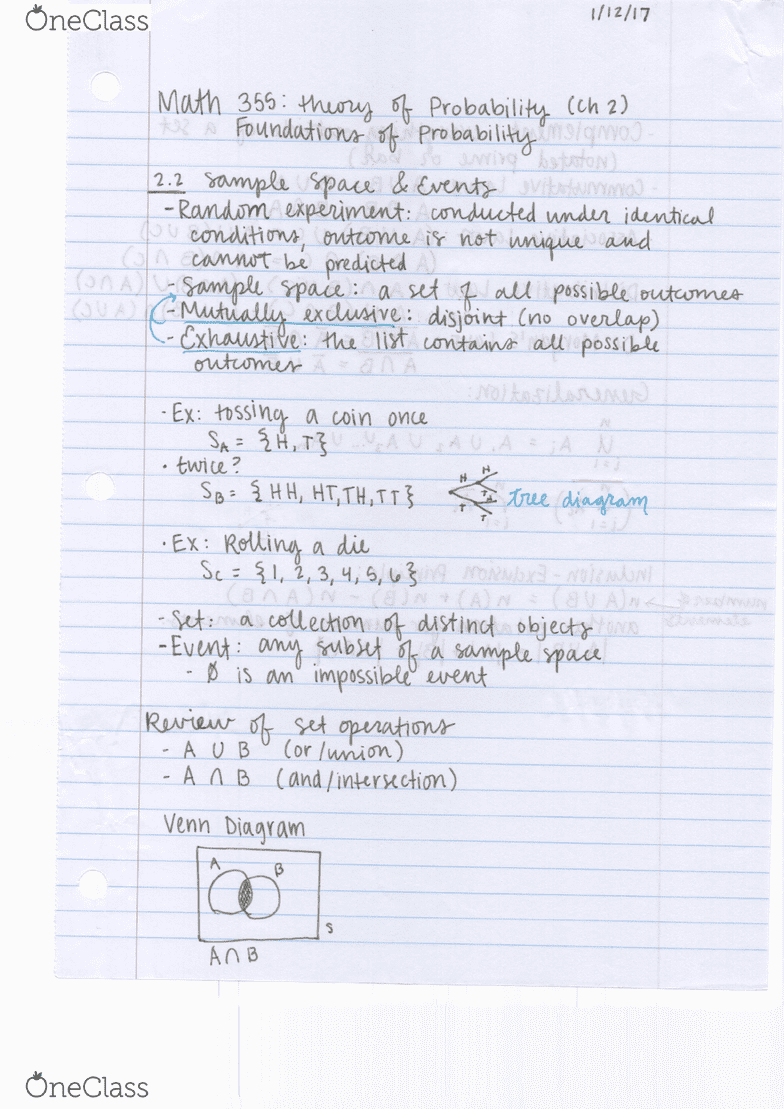 OneClass
1/12/17
Math 355: Theory of Probability (Ch 2)
Foundations of Probability
2.2 Sample Space & Events
- Random experiment: conducted under identical
conditions, outcome is not unique and
cannot be predicted
- Sample space: a set of all possible outcomes
- Mutually exclusive: disjoint (no overlap)
- Exhaustive: the list contains all possible
outcomes
· Ex: tossing a coin once
S_A = {H, T}
· twice?
S_B = {HH, HT, TH, TT}
H H
T H
T T
tree diagram
· Ex: Rolling a die
S_C = {1, 2, 3, 4, 5, 6}
- Set: a collection of distinct objects
- Event: any subset of a sample space
- Ø is an impossible event
Review of set operations
- A ∪ B (or/union)
- A ∩ B (and/intersection)
Venn Diagram
A B
S
A ∩ B
OneClass